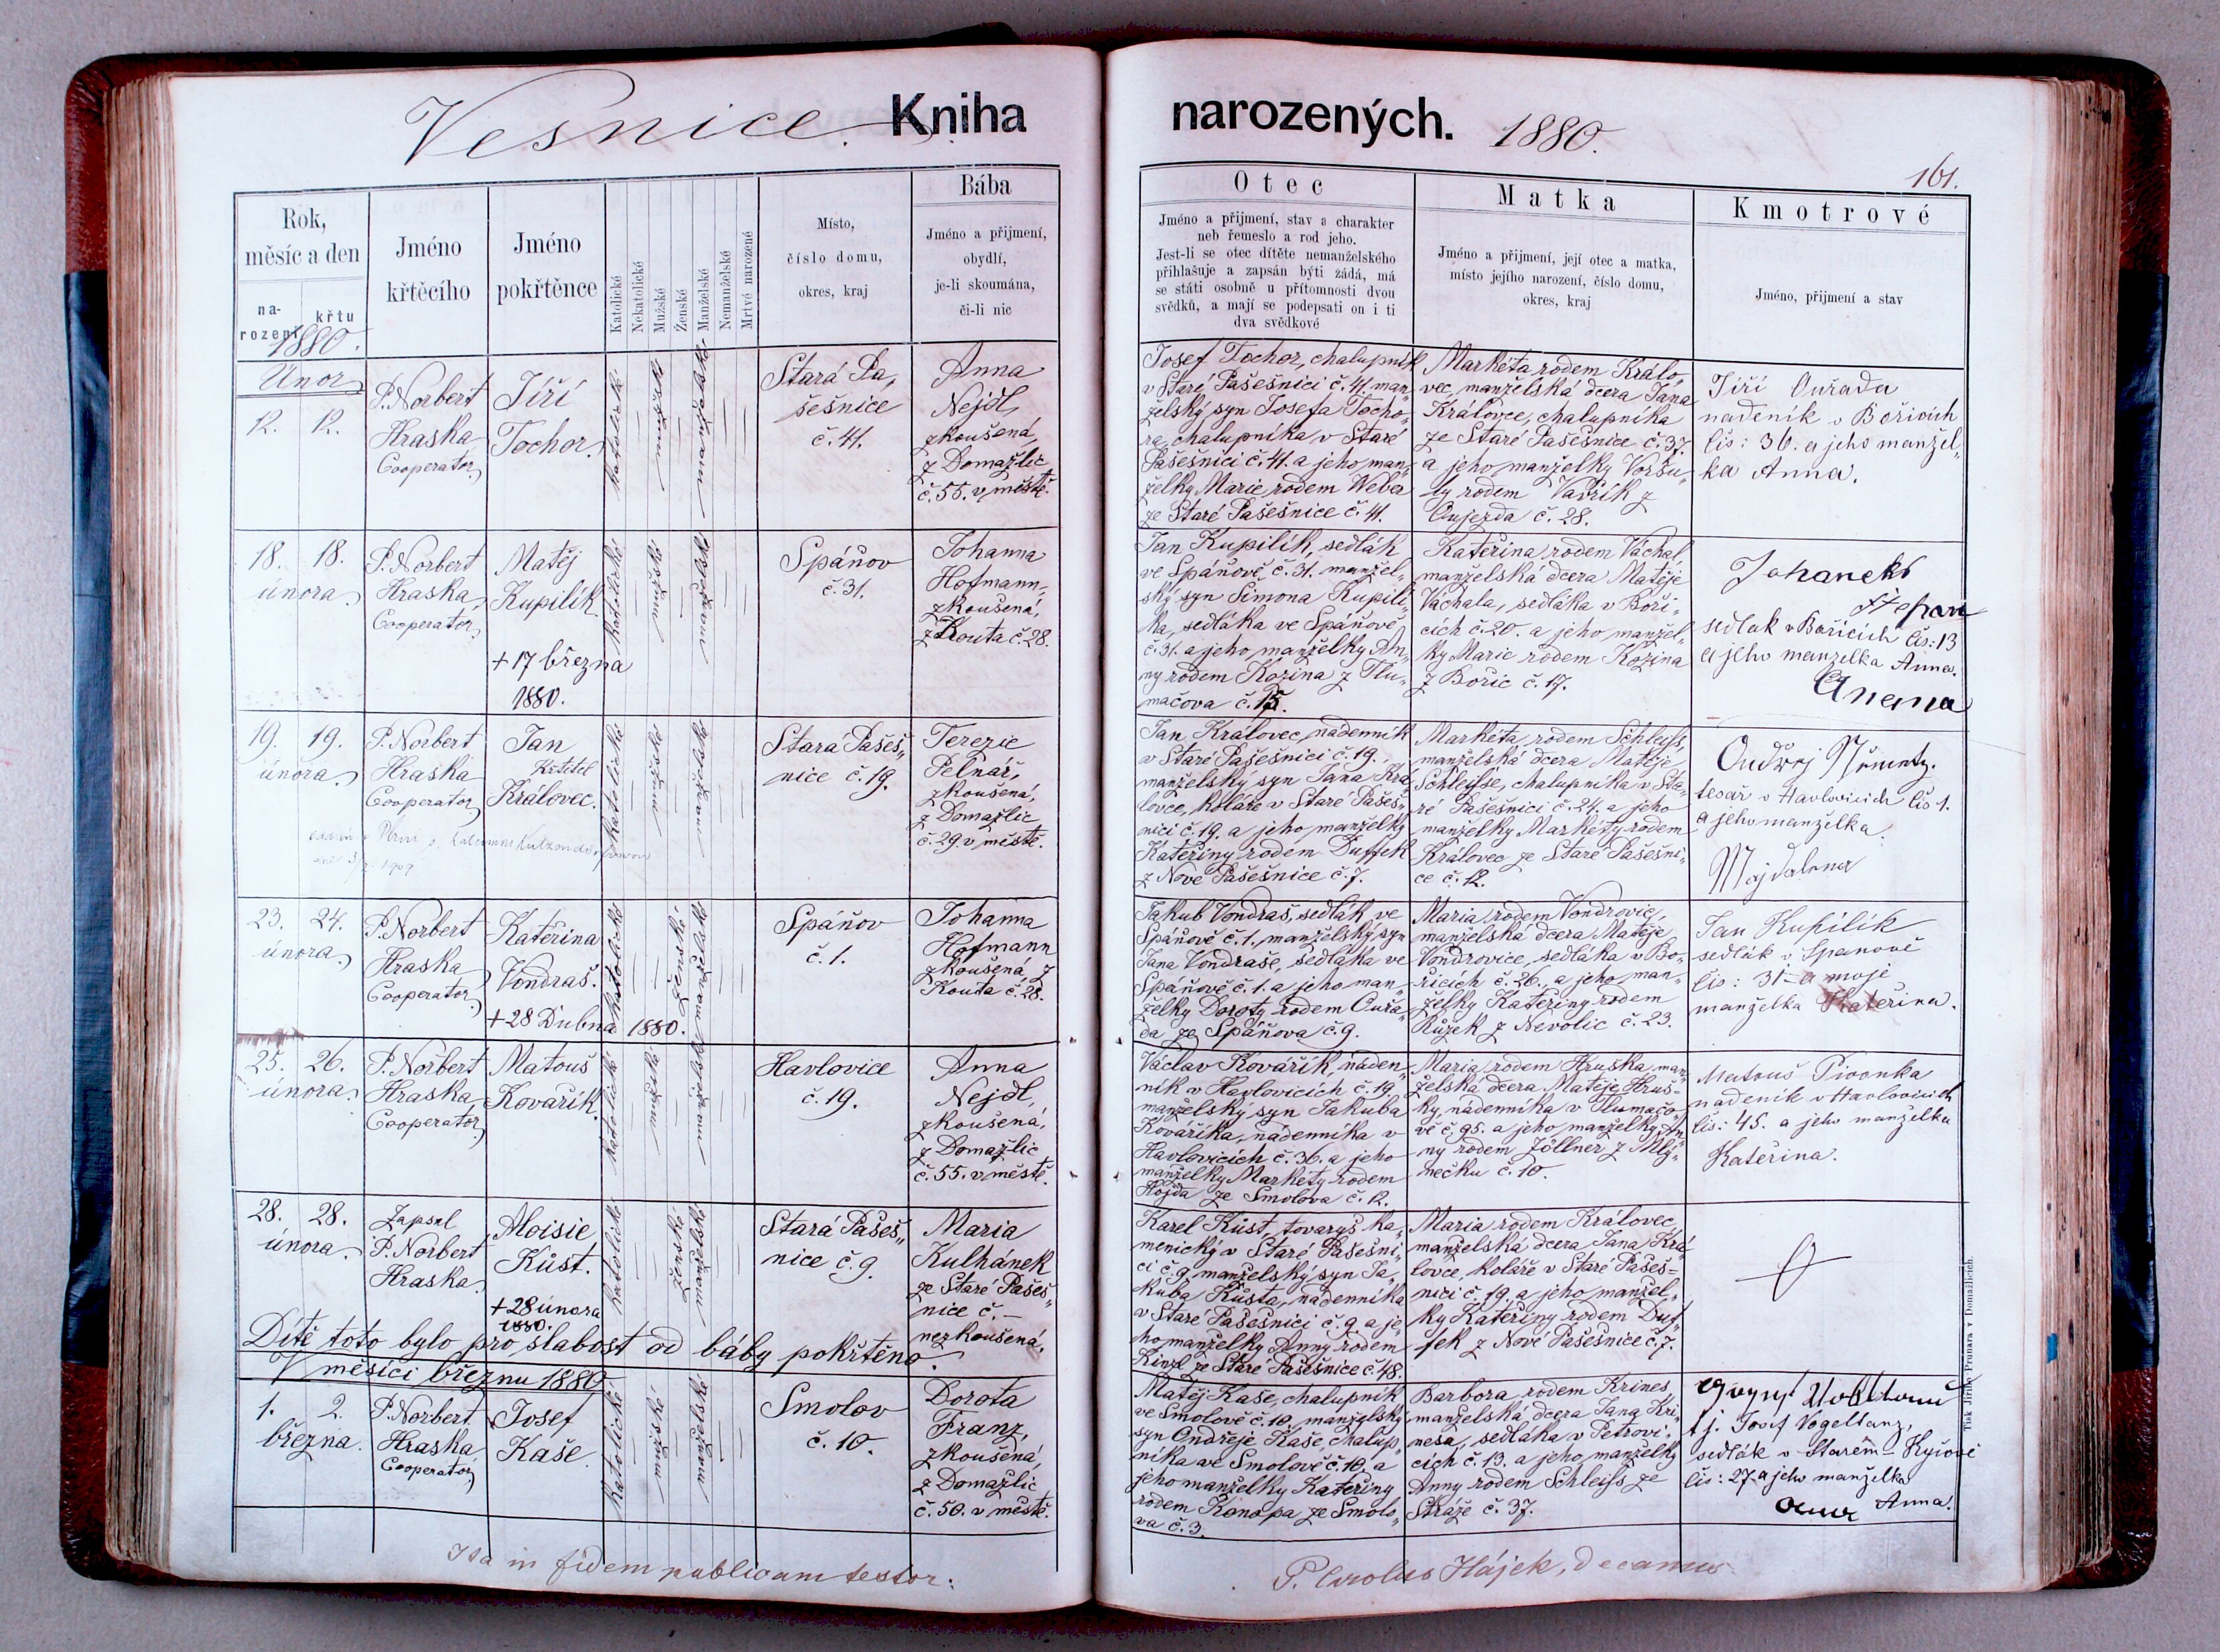 Vesnice. Kniha narozených. 1880.
161.
Rok,
měsíc a den
na-
rození
křtu
1880.
Jméno
křtěcího
Jméno
pokřtěnce
Katolické
Nekatolické
Mužské
Ženské
Manželské
Nemanželské
Mrtvě narozené
Místo,
číslo domu,
okres, kraj
Bába
Jméno a přijmení,
obydlí,
je-li skoumána,
či-li nic
Otec
Jméno a přijmení, stav a charakter
neb řemeslo a rod jeho.
Jest-li se otec dítěte nemanželského
přihlašuje a zapsán býti žádá, má
se státi osobně u přítomnosti dvou
svědků, a mají se podepsati on i ti
dva svědkové
Matka
Jméno a přijmení, její otec a matka,
místo jejího narození, číslo domu,
okres, kraj
Kmotrové
Jméno, přijmení a stav
Únor
12. 12.
P. Norbert
Hraska
Cooperator
Jiří
Tochor.
katolické
mužské
manželské
Stará Pa„
šešnice
č. 41.
Anna
Nejdl,
zkoušená,
z Domažlic
č. 55. v městě.
Josef Tochor, chalupník
v Staré Pašešnici č. 41. man„
želský syn Josefa Tocho„
ra, chalupníka v Staré
Pašešnici č. 41. a jeho man„
želky Marie rodem Weber
ze Staré Pašešnice č. 41.
Markéta rodem Králo„
vec, manželská dcera Jana
Královce, chalupníka
ze Staré Pašešnice č. 37.
a jeho manželky Voršu„
ly rodem Vavřík z
Oujezda č. 28.
Jiří Ouřada
nadeník v Bořicích
čís: 36. a jeho manžel„
ka Anna.
18. 18.
února
P. Norbert
Hraska
Cooperator
Matěj
Kupilík
+ 17 března
1880.
katolické
mužské
manželské
Spáňov
č. 31.
Johanna
Hofmann,
zkoušená,
z Kouta č. 28.
Jan Kupilík, sedlák
ve Spáňově č. 31. manžel„
ský syn Šimona Kupilí„
ka, sedláka ve Spáňově
č. 31. a jeho manželky An„
ny rodem Kozina z Tlu„
mačova č. 15.
Kateřina rodem Váchal,
manželská dcera Matěje
Váchala, sedláka v Boři„
cích č. 20. a jeho manžel„
ky Marie rodem Kozina
z Bořic č. 17.
Johaneks
Štepan
sedlak v Bořicich čís: 13
a jeho manzelka Anna.
Anema
19. 19.
února
P. Norbert
Hraska
Cooperator
Jan
Křtitel
Královec.
1909
katolické
mužské
manželské
Stará Pašeš„
nice č. 19.
Terezie
Pelnář,
zkoušená,
z Domažlic
č. 29. v městě.
Jan Královec, nádenník
v Staré Pašešnici č. 19.,
manželský syn Jana Krá„
lovce, koláře v Staré Pašeš„
nici č. 19. a jeho manželky
Kateřiny rodem Duffek
z Nové Pašešnice č. 7.
Markéta rodem Schleiss,
manželská dcera Matěje
Schleisse, chalupníka v Sta„
ré Pašešnici č. 24. a jeho
manželky Markéty rodem
Královec ze Staré Pašešni„
ce č. 12.
Ondřej
tesař v Havlovicich čis 1.
a jeho manželka
Majdalena
23. 24.
února
P. Norbert
Hraska
Cooperator
Kateřina
Vondraš.
+ 28 Dubna 1880.
katolické
ženské
manželské
Spáňov
č. 1.
Johanna
Hofmann
zkoušená, z
Kouta č. 28.
Jakub Vondraš, sedlák ve
Spáňově č. 1. manželský syn
Jana Vondraše, sedláka ve
Spáňově č. 1. a jeho man„
želky Doroty rodem Ouřa„
da ze Spáňova č. 9.
Maria rodem Vondrovic,
manželská dcera Matěje
Vondrovice, sedláka v Bo„
řicích č. 26. a jeho man„
želky Kateřiny rodem
Růžek z Nevolic č. 23.
Jan Kupilík
sedlák v Spanově
čís: 31 a moje
manželka Kateřina.
25. 26.
února
P. Norbert
Hraska
Cooperator
Matouš
Kovařík.
katolické
mužské
manželské
Havlovice
č. 19.
Anna
Nejdl,
zkoušená,
z Domažlic
č. 55. v městě.
Václav Kovářík, náden„
ník v Havlovicích č. 19.
manželský syn Jakuba
Kováříka, nádenníka v
Havlovicích č. 36. a jeho
manželky Markéty rodem
Hojda ze Smolova č. 12.
Maria rodem Hruška, man„
želská dcera Matěje Hruš„
ky, nádenníka v Tlumačo„
vě č. 95. a jeho manželky An„
ny rodem Zöllner z Mlý„
nečku č. 10.
Matouš Pivonka
nadeník v Havlovicich
čis: 45. a jeho manželka
Kateřina.
28. 28.
února
Zapsal
P. Norbert
Hraska
Aloisie
Küst.
+ 28 února
1880.
katolické
ženské
manželské
Stará Pašeš„
nice č. 9.
Maria
Kulhánek
ze Staré Pašeš„
nice č. –
nezkoušená.
Dítě toto bylo pro slabost od báby pokřtěno.
Karel Küst, tovaryš ka„
menický v Staré Pašešni„
ci č. 9. manželský syn Ja„
kuba Küsta, nádenníka
v Staré Pašešnici č. 9. a je„
ho manželky Anny rodem
Kinzl ze Staré Pašešnice č. 48.
Maria rodem Královec,
manželská dcera Jana Krá„
lovce, koláře v Staré Pašeš„
nici č. 19. a jeho manžel„
ky Kateřiny rodem Duf„
fek z Nové Pašešnice č. 7.
V měsíci březnu 1880
1. 2.
března
P. Norbert
Hraska
Cooperator
Josef
Kaše
katolické
mužské
manželské
Smolov
č. 10.
Dorota
Franz,
zkoušená,
z Domažlic
č. 50. v městě.
Matěj Kaše, chalupník
ve Smolově č. 10. manželský
syn Ondřeje Kaše, chalup„
níka ve Smolově č. 10. a
jeho manželky Kateřiny
rodem Konopa ze Smolo„
va č. 3.
Barbora rodem Krines,
manželská dcera Jana Kri„
nesa, sedláka v Petrovi„
cích č. 13. a jeho manželky
Anny rodem Schleiss ze
Stráže č. 37.
tj. Josef Vogeltanz,
sedlák v Starém Kyčově
čís: 27 a jeho manželka
Anna.
Ita in fidem publicam testor:
P. Carolus Hájek, decanus
Tisk Jiřího Prunara v Domažlicích.